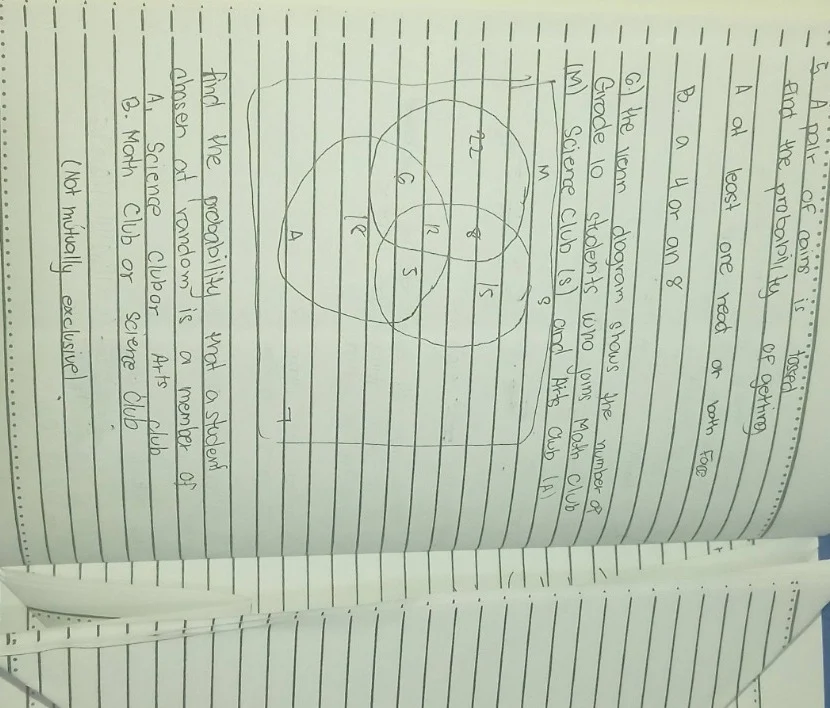 5. A pair of coins is tossed
find the probability of getting
A at least one head or both Face
B. a 4 or an 8
6) the venn diagram shows the number of
Grade 10 students who joins Math Club
(M) Science Club (S) and Arts Club (A)
M S
22 8 15
6 12 5
18
A
7
find the probability that a student
chosen at random is a member of
A. Science Club or Arts Club
B. Math Club or Science Club
(Not mutually exclusive)